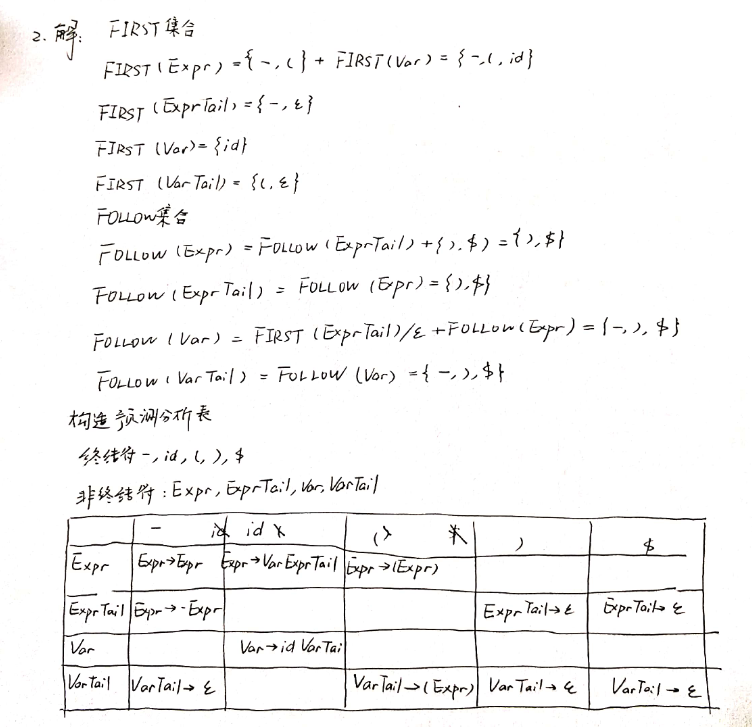 2. 解: FIRST集合
FIRST(Expr) = {-, (} + FIRST(Var) = {-, (, id}
FIRST (ExprTail) = {-, ε}
FIRST (Var) = {id}
FIRST (VarTail) = {(, ε}
FOLLOW集合
FOLLOW (Expr) = FOLLOW (ExprTail) + {), $) = {), $}
FOLLOW (ExprTail) = FOLLOW (Expr) = {), $}
FOLLOW (Var) = FIRST (ExprTail)/ε + FOLLOW (Expr) = {-, ), $}
FOLLOW (VarTail) = FOLLOW (Var) = {-, ), $}
构造预测分析表
终结符 -, id, (, ), $
非终结符: Expr, ExprTail, Var, VarTail
- id ( ) $
Expr Expr→Expr Expr→Var ExprTail Expr→(Expr)
ExprTail Expr→-Expr ExprTail→ε ExprTail→ε
Var Var→id VarTai
VarTail VarTail→ε VarTail→(Expr) VarTail→ε VarTail→ε